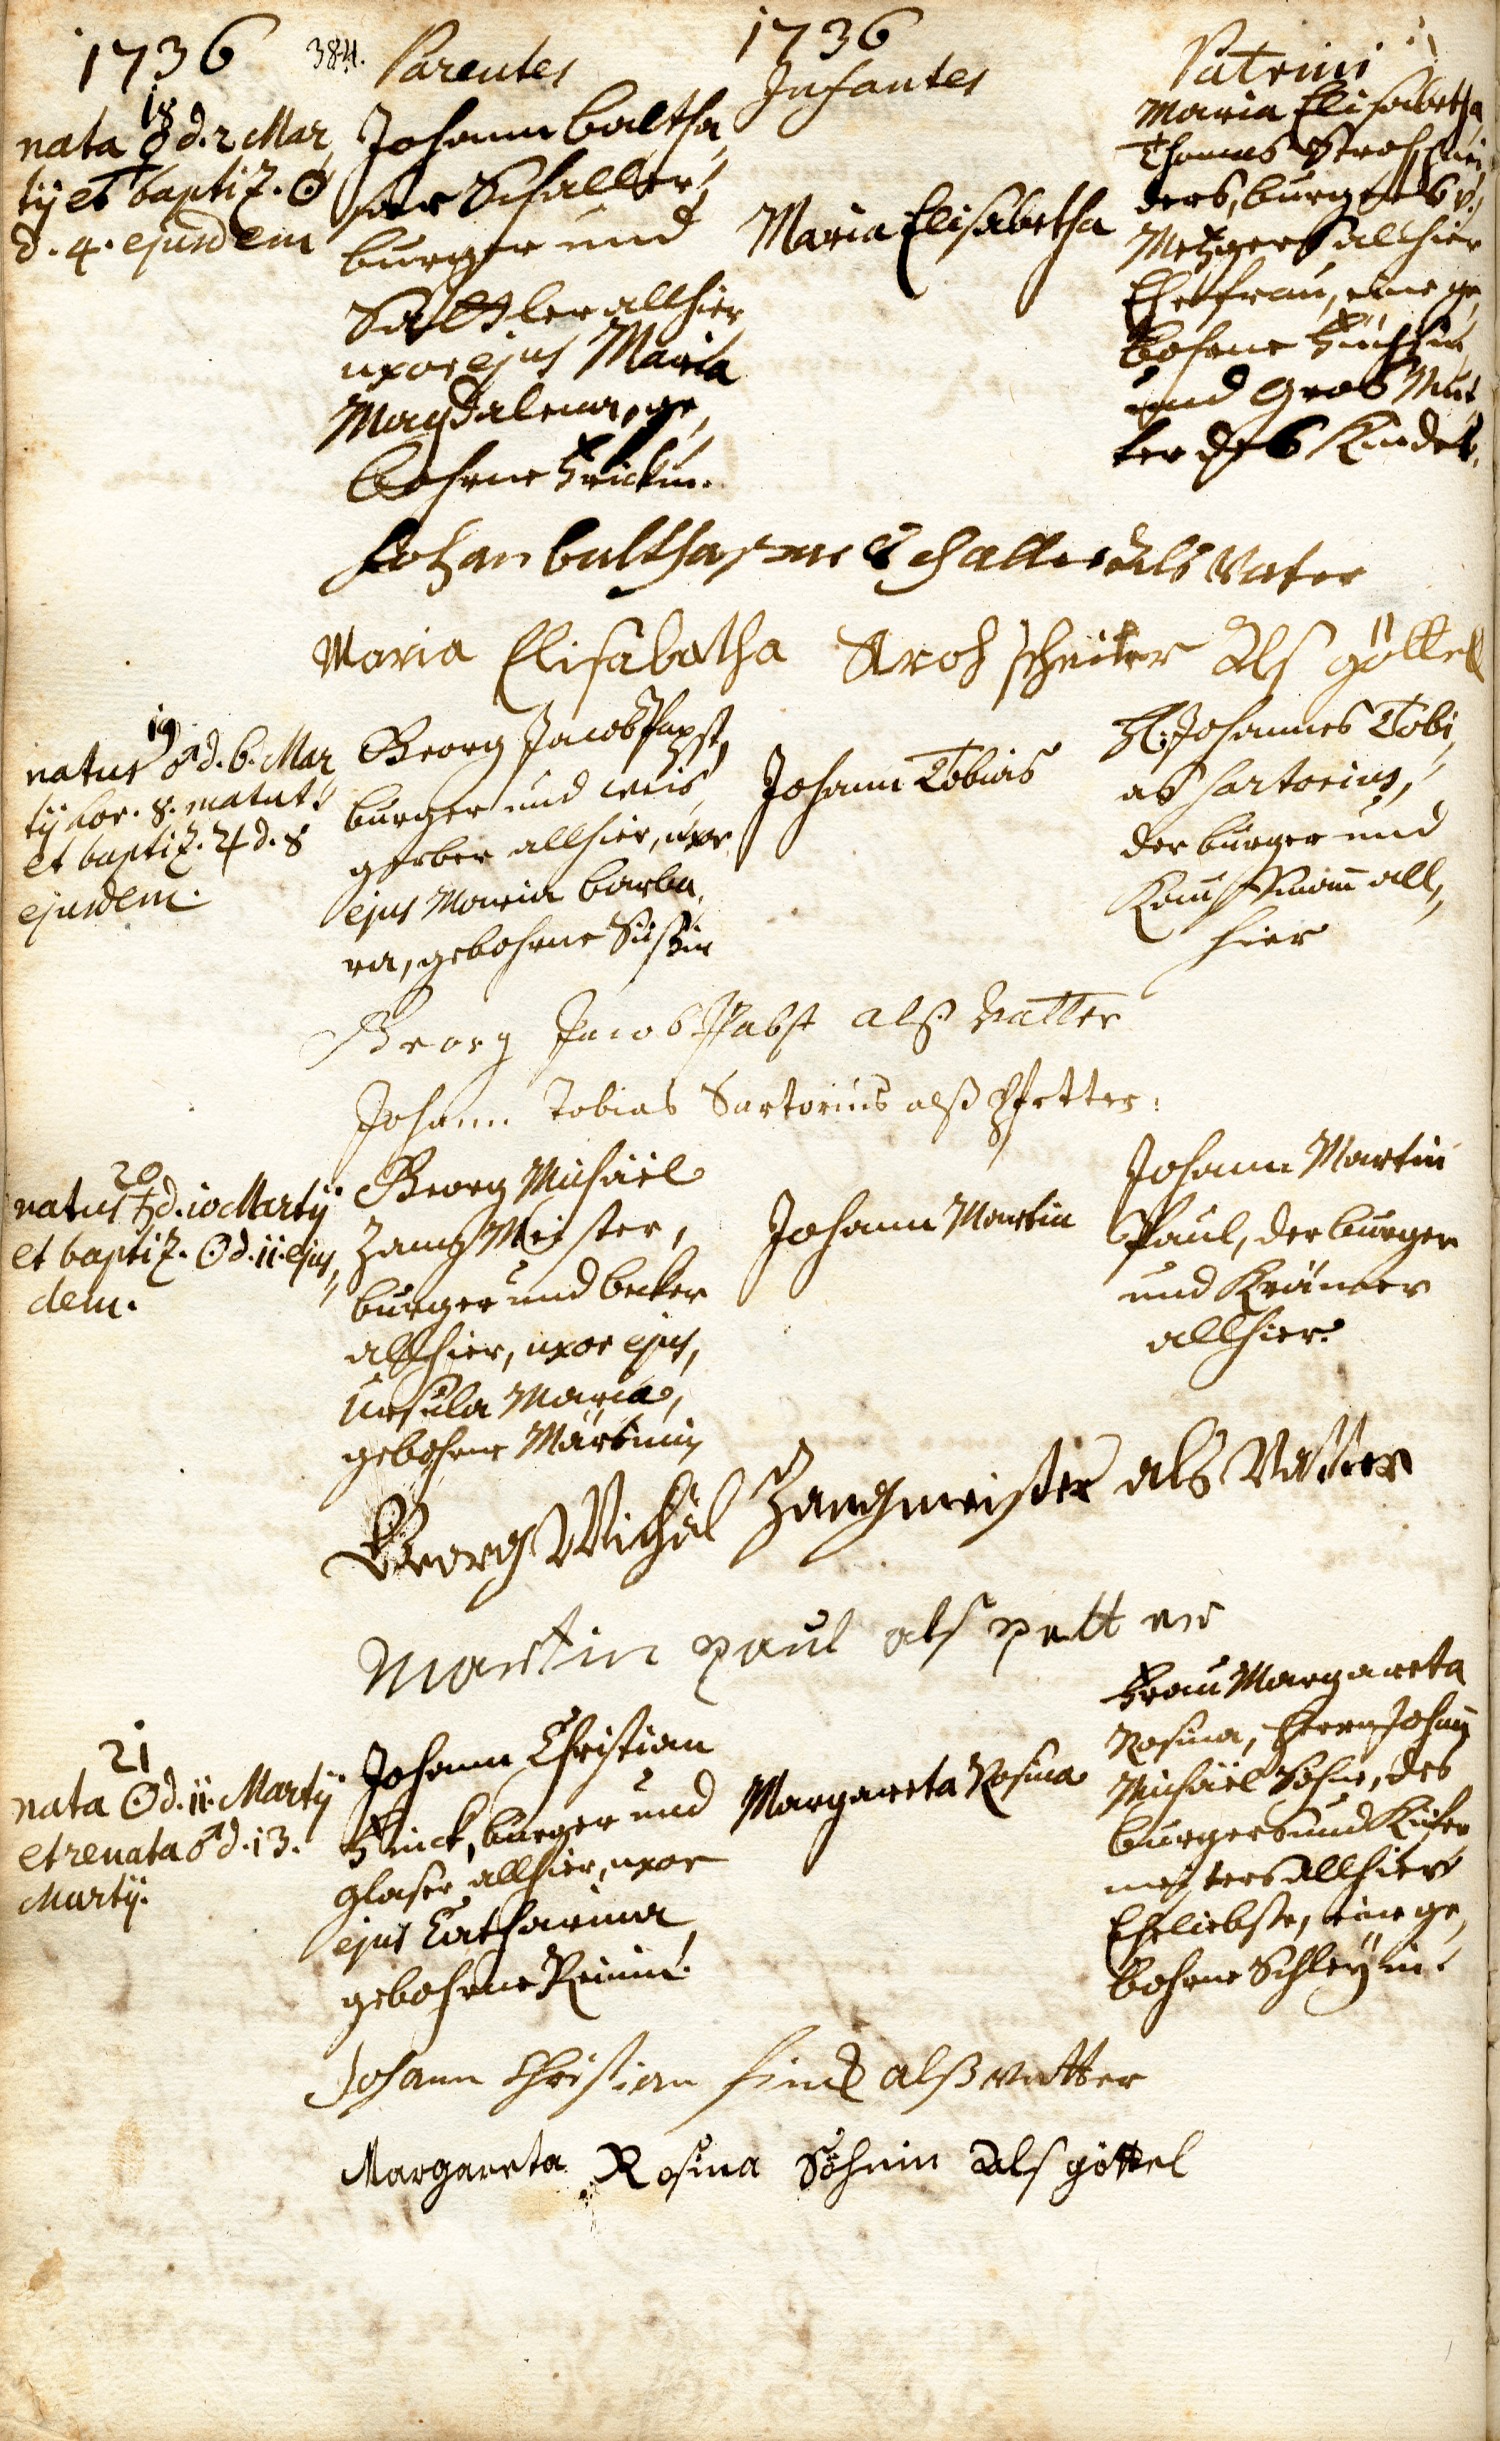 1736
384.
Parentes
1736
Infantes
Patrini
18
nata ☿ d. 2 Mar
tij et baptiz. ☉
d. 4. ejusdem
Johann Baltha,
sar Schaller,
burger und
Sattler allhier
uxor ejus Maria
Magdalena, ge,
bohrne Frickin.
Maria Elisabetha
Maria Elisabetha,
Thomas Strohschnei,
ders, burgers u.
Metzgers allhier
Ehefrau, eine ge,
bohrne
und Gros Mut,
ter des Kindes.
Johan balthasar Schaller als Vater
Maria Elisabetha Stroh schneiter Als göttel
19
natus ♂ d. 6. Mar
tij hor. 8. matut.
et baptiz. ♃ d. 8
ejusdem.
Georg Jacob Papst,
burger und weis,
gerber allhier, uxor
ejus Maria Barba,
ra, gebohrne Süßin
Johann Tobias
H. Johannes Tobi,
as Sartorius,
der burger und
Kauffmann all,
hier
Georg Jacob Pabst alß Vatter
Johann Tobias Sartorius alß Pfetter:
20
natus ♄ d. 10 Martij
et baptiz. ☉ d. 11. ejus,
dem.
Georg Michäel
Zangmeister,
burger und becker
allhier, uxor ejus,
Ursula Maria,
gebohrne Märtinin
Johann Martin
Johann Martin
Paul, der burger
und Krämer
allhier.
Georg Michäl Zangmeister als Vatter
Martin paul als petter
21
nata ☉ d. 11. Martij
et renata ♂ d. 13.
Martij.
Johann Christian
Finck, burger und
glaser allhier, uxor
ejus Catharina,
gebohrne
Margareta Rosina
Frau Margareta
Rosina, Herrn Johann
Michäel Söhne, des
burgers und Kiefer
meisters allhier
Eheliebste, eine ge,
bohrne Schleÿin.
Johann Christian finck alß vatter
Margareta Rosina Söhnin Als göttel